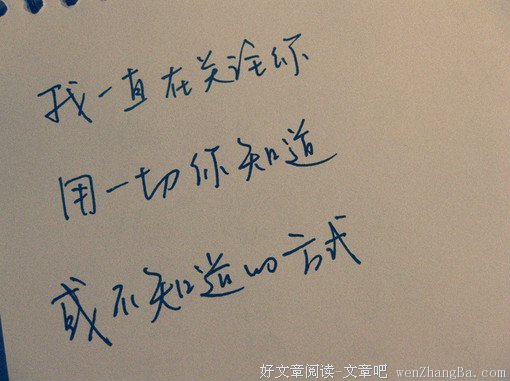 我一直在关注你
用一切你知道
或不知道的方式
好文章阅读-文章吧 wenZhangBa.com